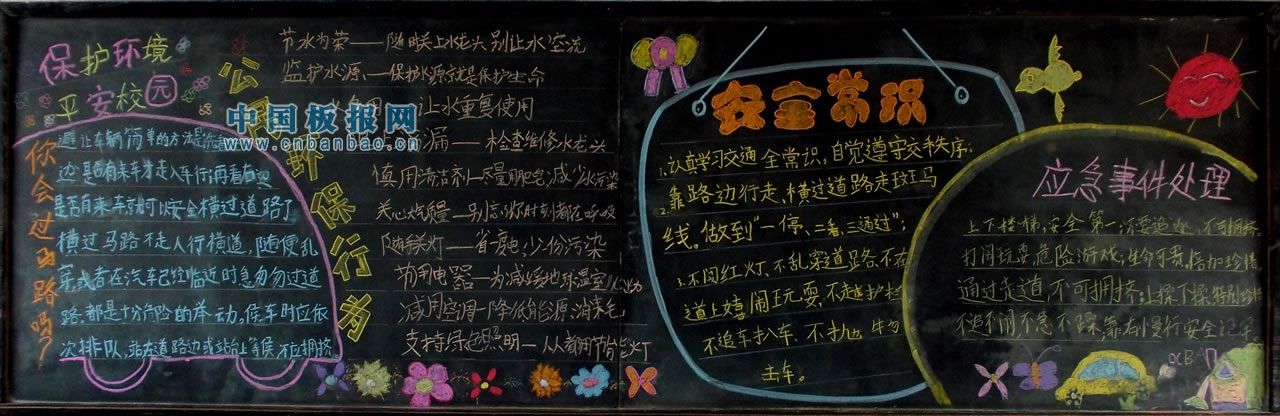 保护环境
平安校园
你会过马路吗?
避让车辆简单的方法是先看左
边是否有来车才走入车行,再看右
是否有来车就可以安全横过道路了
横过马路不走人行横道,随便乱
穿,或者在汽车已经临近时急匆匆过道
路,都是十分危险的举动。侯车时应依
次排队,站在道路边或站台上等侯,不应拥挤
公民环保行为
节水为荣——随时关上水龙头别让水空流
监护水源——保护水源就是保护生命
让水重复使用
漏——检查维修水龙头
慎用清洁剂—尽量用肥皂,减少水污染
关心大气质量—别忘了你时刻都在呼吸
随手关灯—省度电,少份污染
节用电器—为减缓地球温室
减用空调—降低能源消耗
支持绿色照明—人人都用节能灯
中国板报网
www.cnbanbao.cn
安全常识
1.认真学习交通全常识,自觉遵守交秩序.
2.靠路边行走,横过道路走斑马
线。做到“一停、二看、三通过”;
3.不闯红灯、不乱穿道路、不在
道上嬉闹玩耍、不越护栏
不追车扒车、不扒
击车。
应急事件处理
上下楼梯,安全第一,不要追赶,不可拥挤,
打闹玩耍,危险游戏,生命可贵,倍加珍惜
通过走道,不可拥挤,上操下操
不追不闹不急不躁,靠右慢行安全记牢